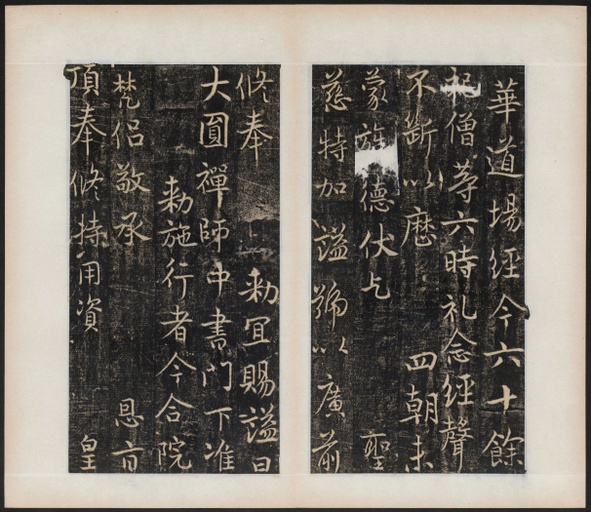 華道場經今六十餘
祀僧等六時礼念經聲
不斷以歷 四朝未
蒙旌德伏乞 聖
慈特加謚號以廣前
修奉 勅宜賜謚曰
大圓禪師中書門下准
勅施行者今合院
梵侶敬承 恩旨
頂奉修持用資 皇